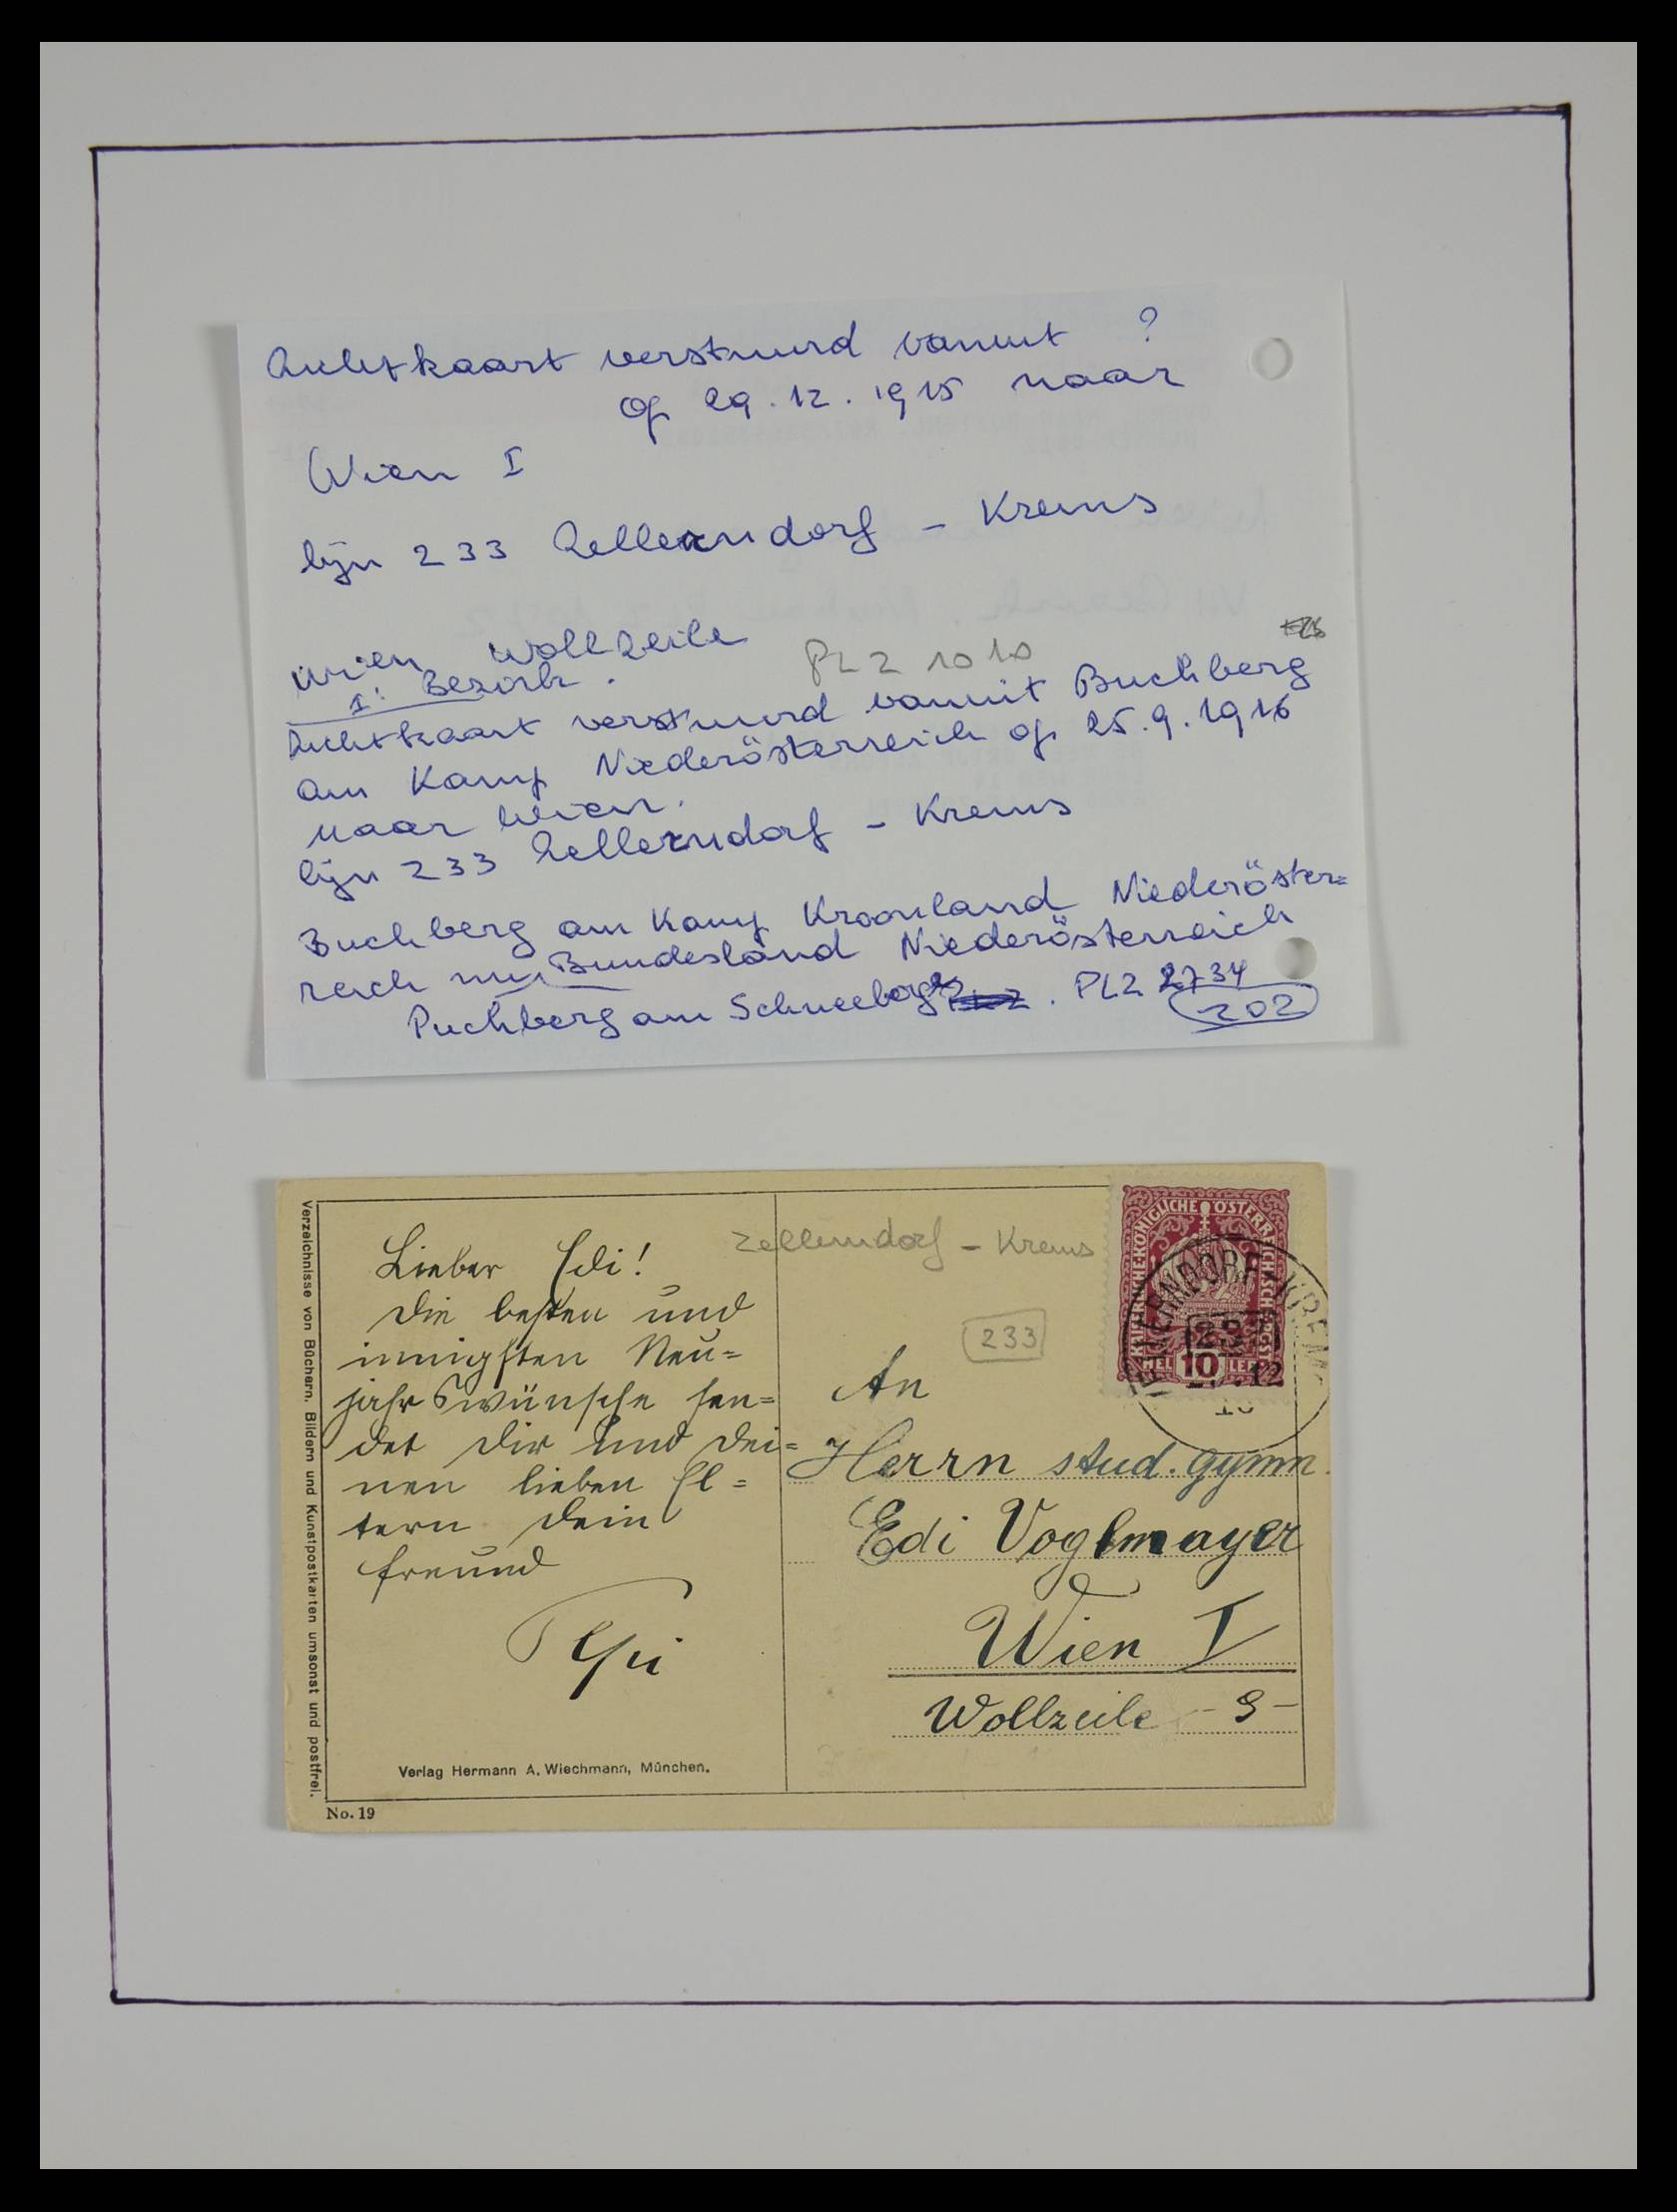 Zichtkaart verstuurd vanuit ?
op 29.12.1915 naar
Wien I
lijn 233 Zellerndorf - Krems
Wien Wollzeile PLZ 1010
I. Bezirk.
Zichtkaart verstuurd vanuit Buchberg
am Kamp Niederösterreich op 25.9.1916
naar Wien.
lijn 233 Zellerndorf - Krems
Buchberg am Kamp Kroonland Niederöster=
reich nu Bundesland Niederösterreich
Puchberg am Schneeberg. PLZ 2734
202
Zellerndorf - Krems
233
KAISERLICHE KÖNIGLICHE ÖSTERREICHISCHE POST
HELLER 10
ZELLERNDORF - KREMS
233
12
Lieber Edi!
Die besten und
innigsten Neu=
jahrswünsche sen=
det Dir und Dei=
nen lieben El=
tern Dein
Freund
An
Herrn stud. gymn.
Edi Voglmayer
Wien I
Wollzeile - 9 -
Verlag Hermann A. Wiechmann, München.
No. 19
Verzeichnisse von Büchern, Bildern und Kunstpostkarten umsonst und postfrei.